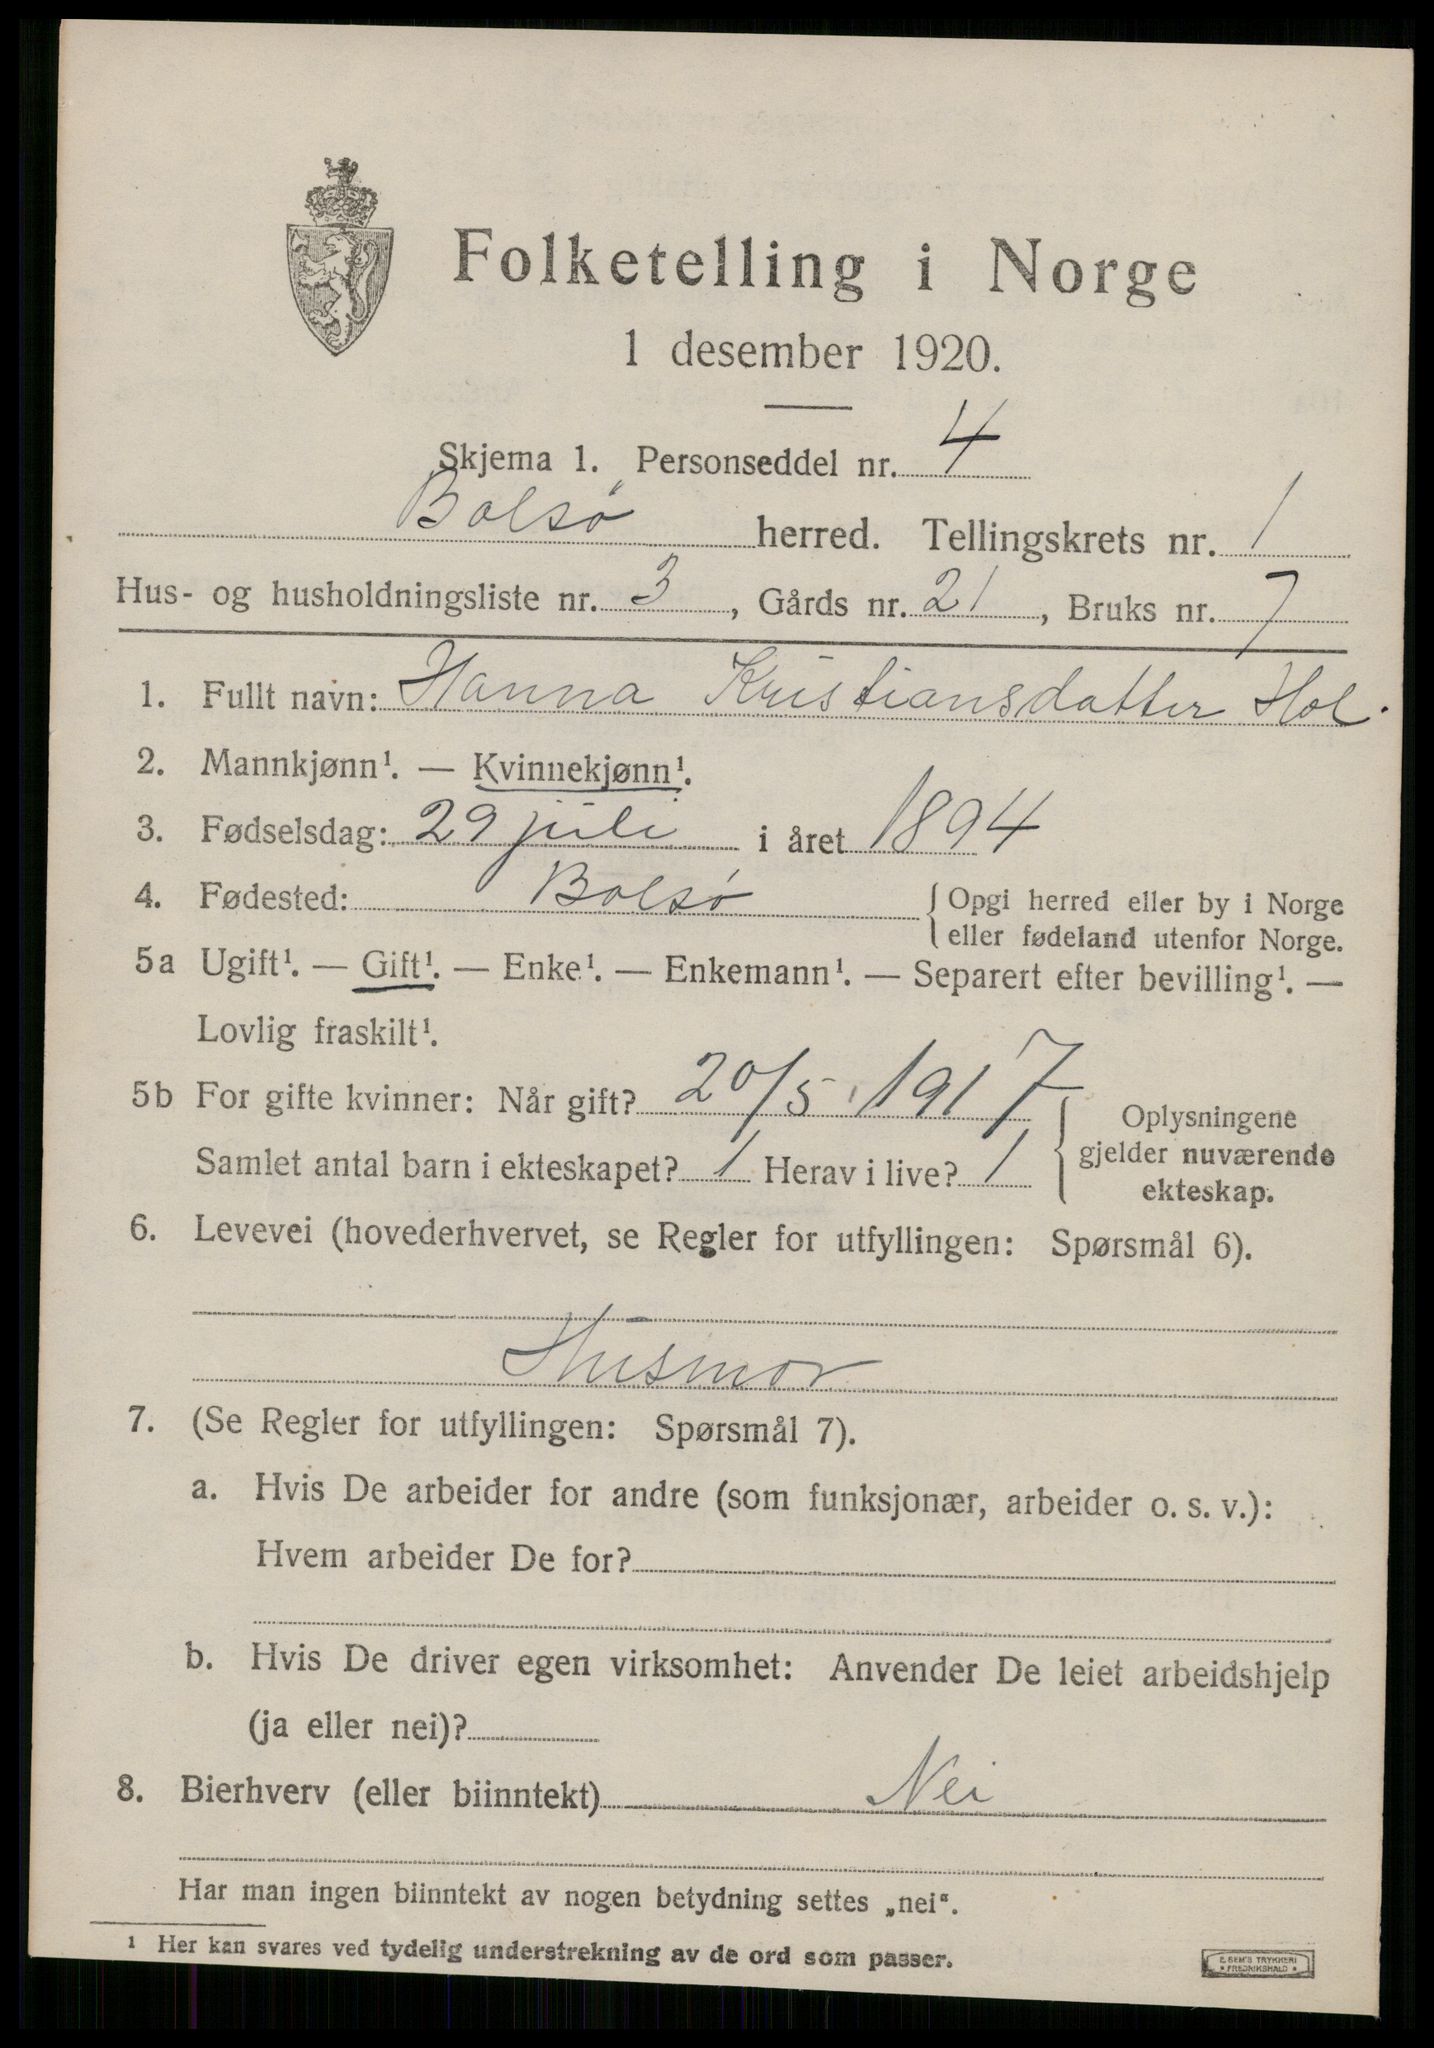 Folketelling i Norge
1 desember 1920.
Skjema 1. Personseddel nr. 4
Bolsø herred. Tellingskrets nr. 1
Hus- og husholdningsliste nr. 3, Gårds nr. 21, Bruks nr. 7
1. Fullt navn: Hanna Kristiansdatter Hol.
2. Mannkjønn¹. — Kvinnekjønn¹.
3. Fødselsdag: 29 juli i året 1894
4. Fødested: Bolsø { Opgi herred eller by i Norge
eller fødeland utenfor Norge.
5a Ugift¹. — Gift¹. — Enke¹. — Enkemann¹. — Separert efter bevilling¹. —
Lovlig fraskilt¹.
5b For gifte kvinner: Når gift? 20/5 1917
Samlet antal barn i ekteskapet? 1 Herav i live? 1
{ Oplysningene
gjelder nuværende
ekteskap.
6. Levevei (hovederhvervet, se Regler for utfyllingen: Spørsmål 6).
Husmor
7. (Se Regler for utfyllingen: Spørsmål 7).
a. Hvis De arbeider for andre (som funksjonær, arbeider o. s. v.):
Hvem arbeider De for?
b. Hvis De driver egen virksomhet: Anvender De leiet arbeidshjelp
(ja eller nei)?
8. Bierhverv (eller biinntekt) Nei
Har man ingen biinntekt av nogen betydning settes „nei“.
¹ Her kan svares ved tydelig understrekning av de ord som passer.
E SEM'S TRYKKERI
* FREDRIKSHALD *